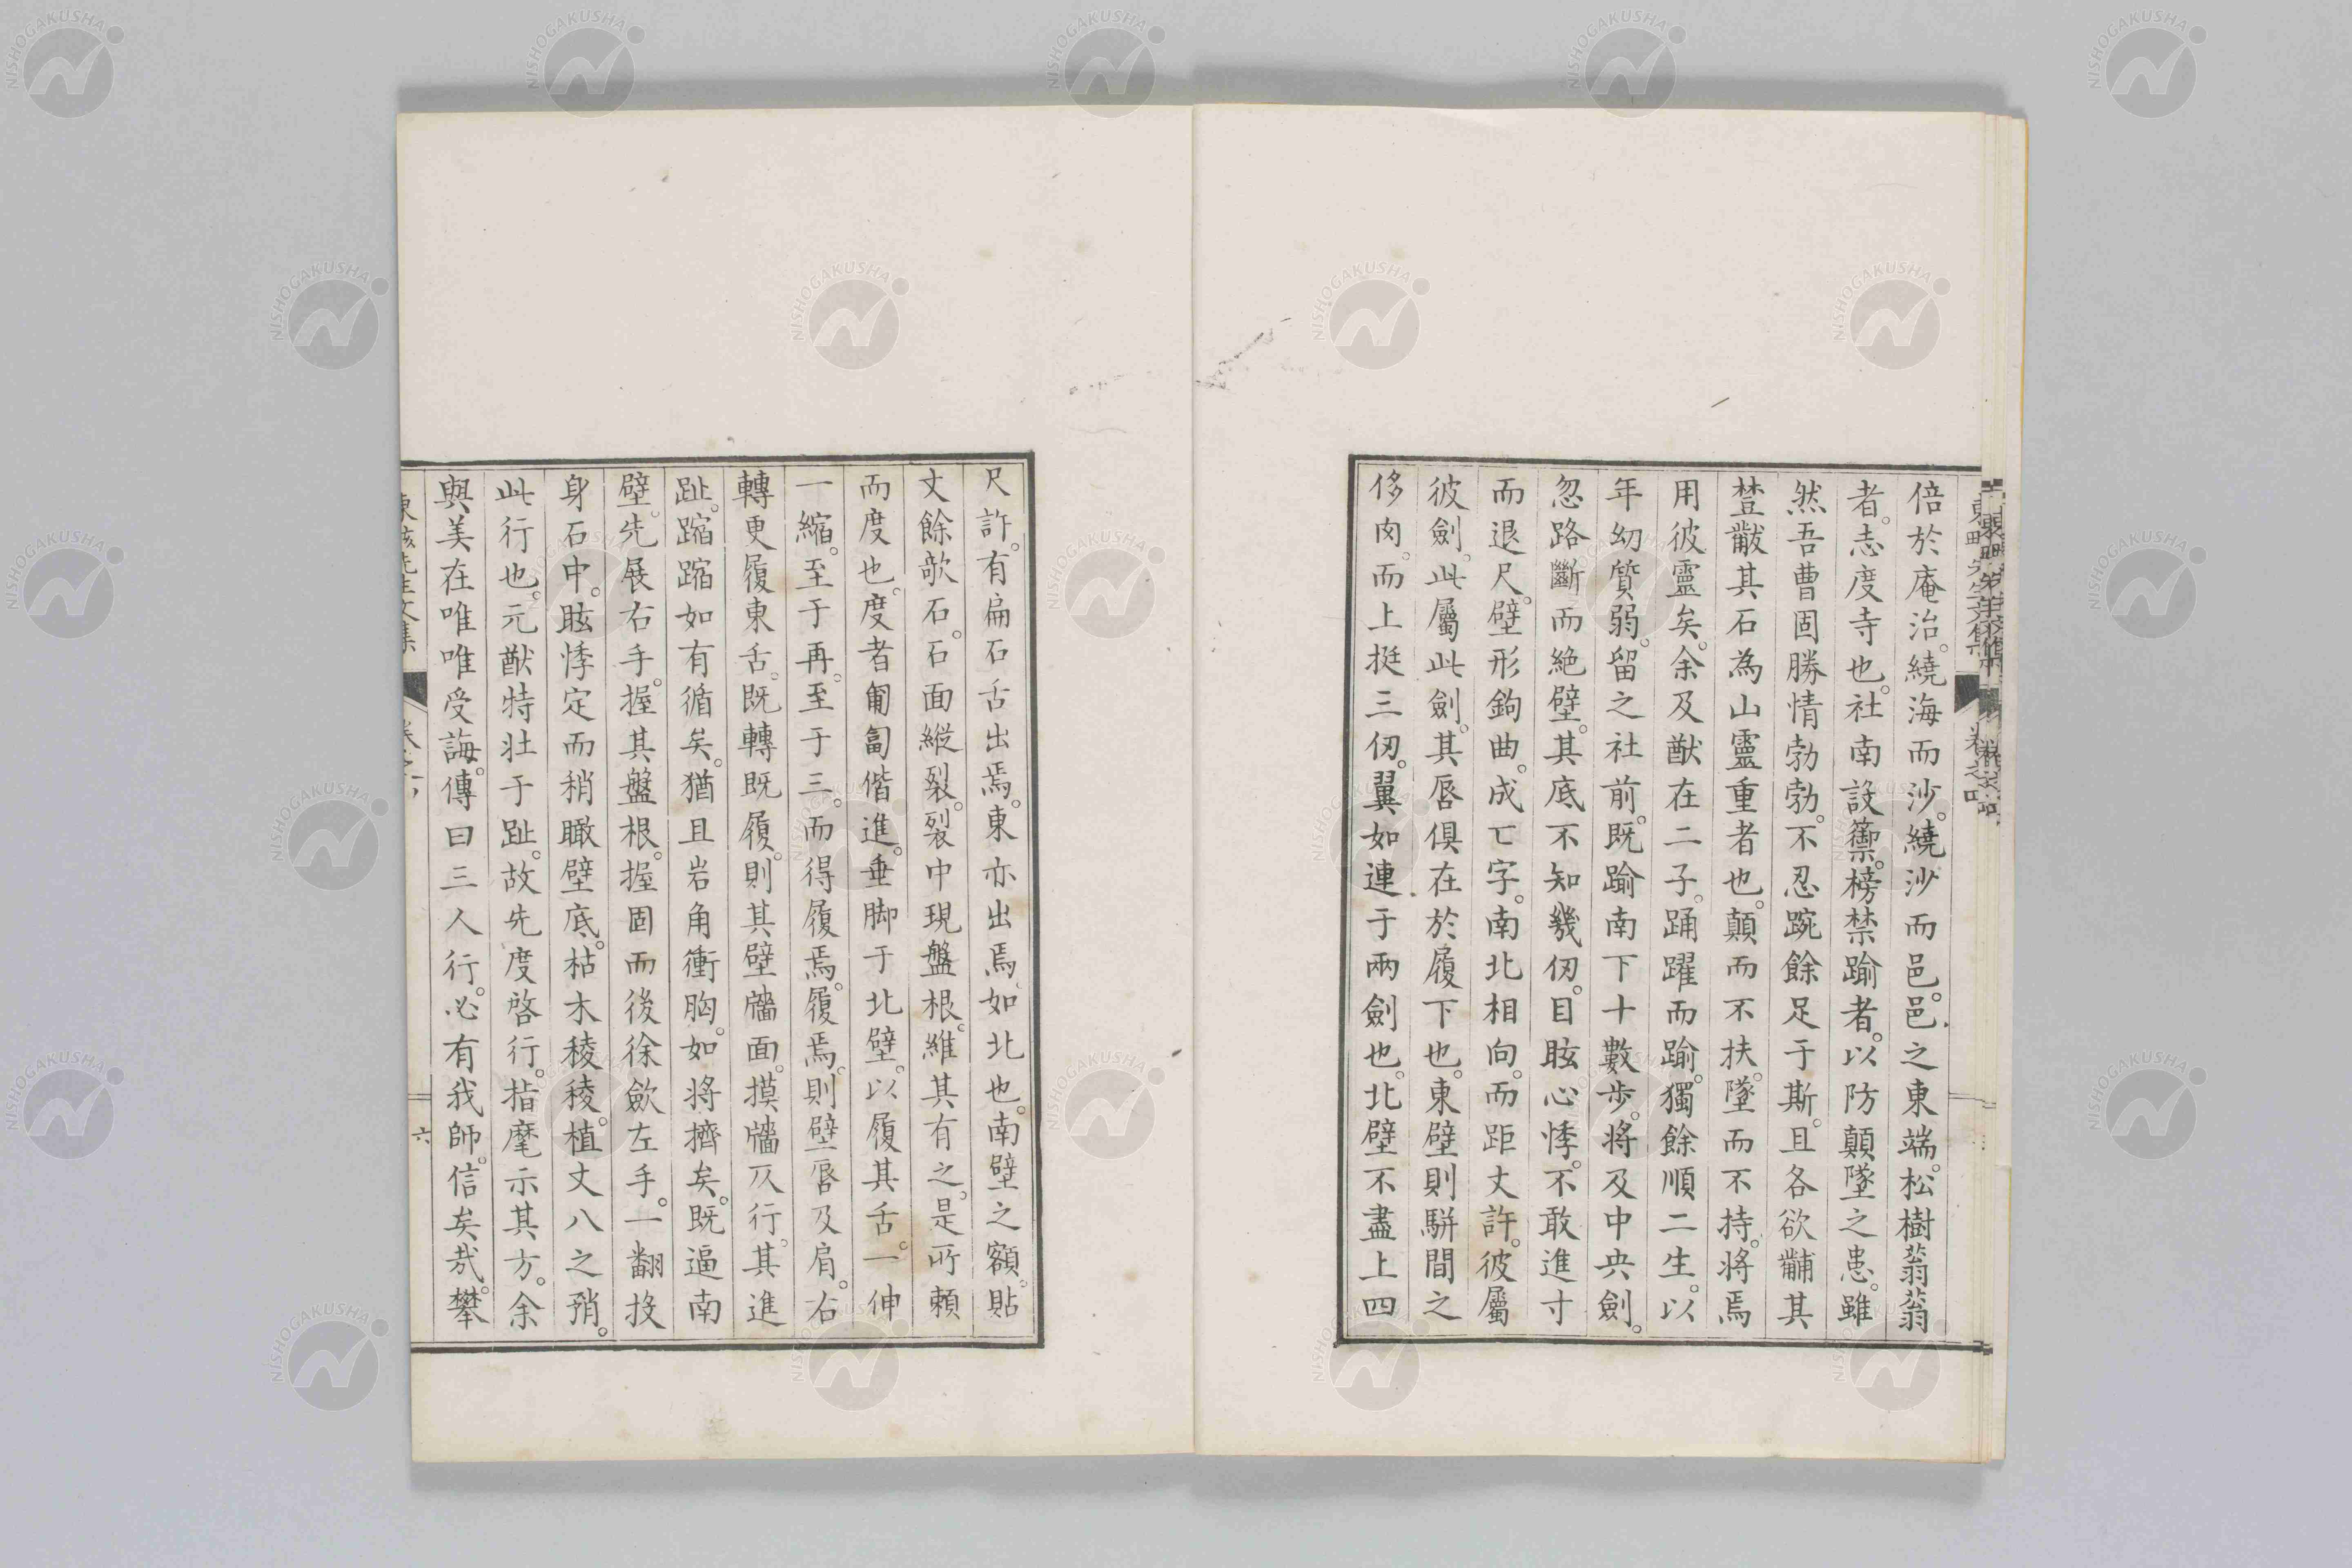 倍於庵治。繞海而沙。繞沙而邑。邑之東端。松樹蓊蓊
者。志度寺也。社南設籞。榜禁踰者。以防顛墜之患。雖
然吾曹固勝情勃勃。不忍踠餘足于斯。且各欲黼其
其石為山靈重者也。顛而不扶。墜而不持。將焉
用彼靈矣。余及猷在二子。踊躍而踰。獨餘順二生。以
年幼質弱。留之社前。既踰南下十數步。將及中央劍。
忽路斷而絶壁。其底不知幾仞。目眩心悸。不敢進寸
而退尺。壁形鉤曲。成匸字。南北相向。而距丈許。彼屬
彼劍。此屬此劍。其唇俱在於履下也。東壁則駢間之
侈肉。而上挺三仞。翼如連于兩劍也。北壁不盡上四
尺許。有扁石舌出焉。東亦出焉。如北也。南壁之額。貼
丈餘欹石。石面縱裂。裂中現盤根。維其有之。是所賴
而度也。度者匍匐偕進。垂脚于北壁。以履其舌。一伸
一縮。至于再。至于三。而得履焉。履焉。則壁唇及肩。右
轉更履東舌。既轉既履。則其壁牆面。摸牆仄行。其進
趾。蹜蹜如有循矣。猶且岩角衝胸。如將擠矣。既逼南
壁。先展右手。握其盤根。握固而後徐歛左手。一翻投
身石中。眩悸定而稍瞰壁底。枯木稜稜。植丈八之矟。
此行也。元猷特壯于趾。故先度啓行。指麾示其方。余
與美在唯唯受誨。傳曰三人行。必有我師。信矣哉。攀
卷之
六
NISHOGAKUSHA